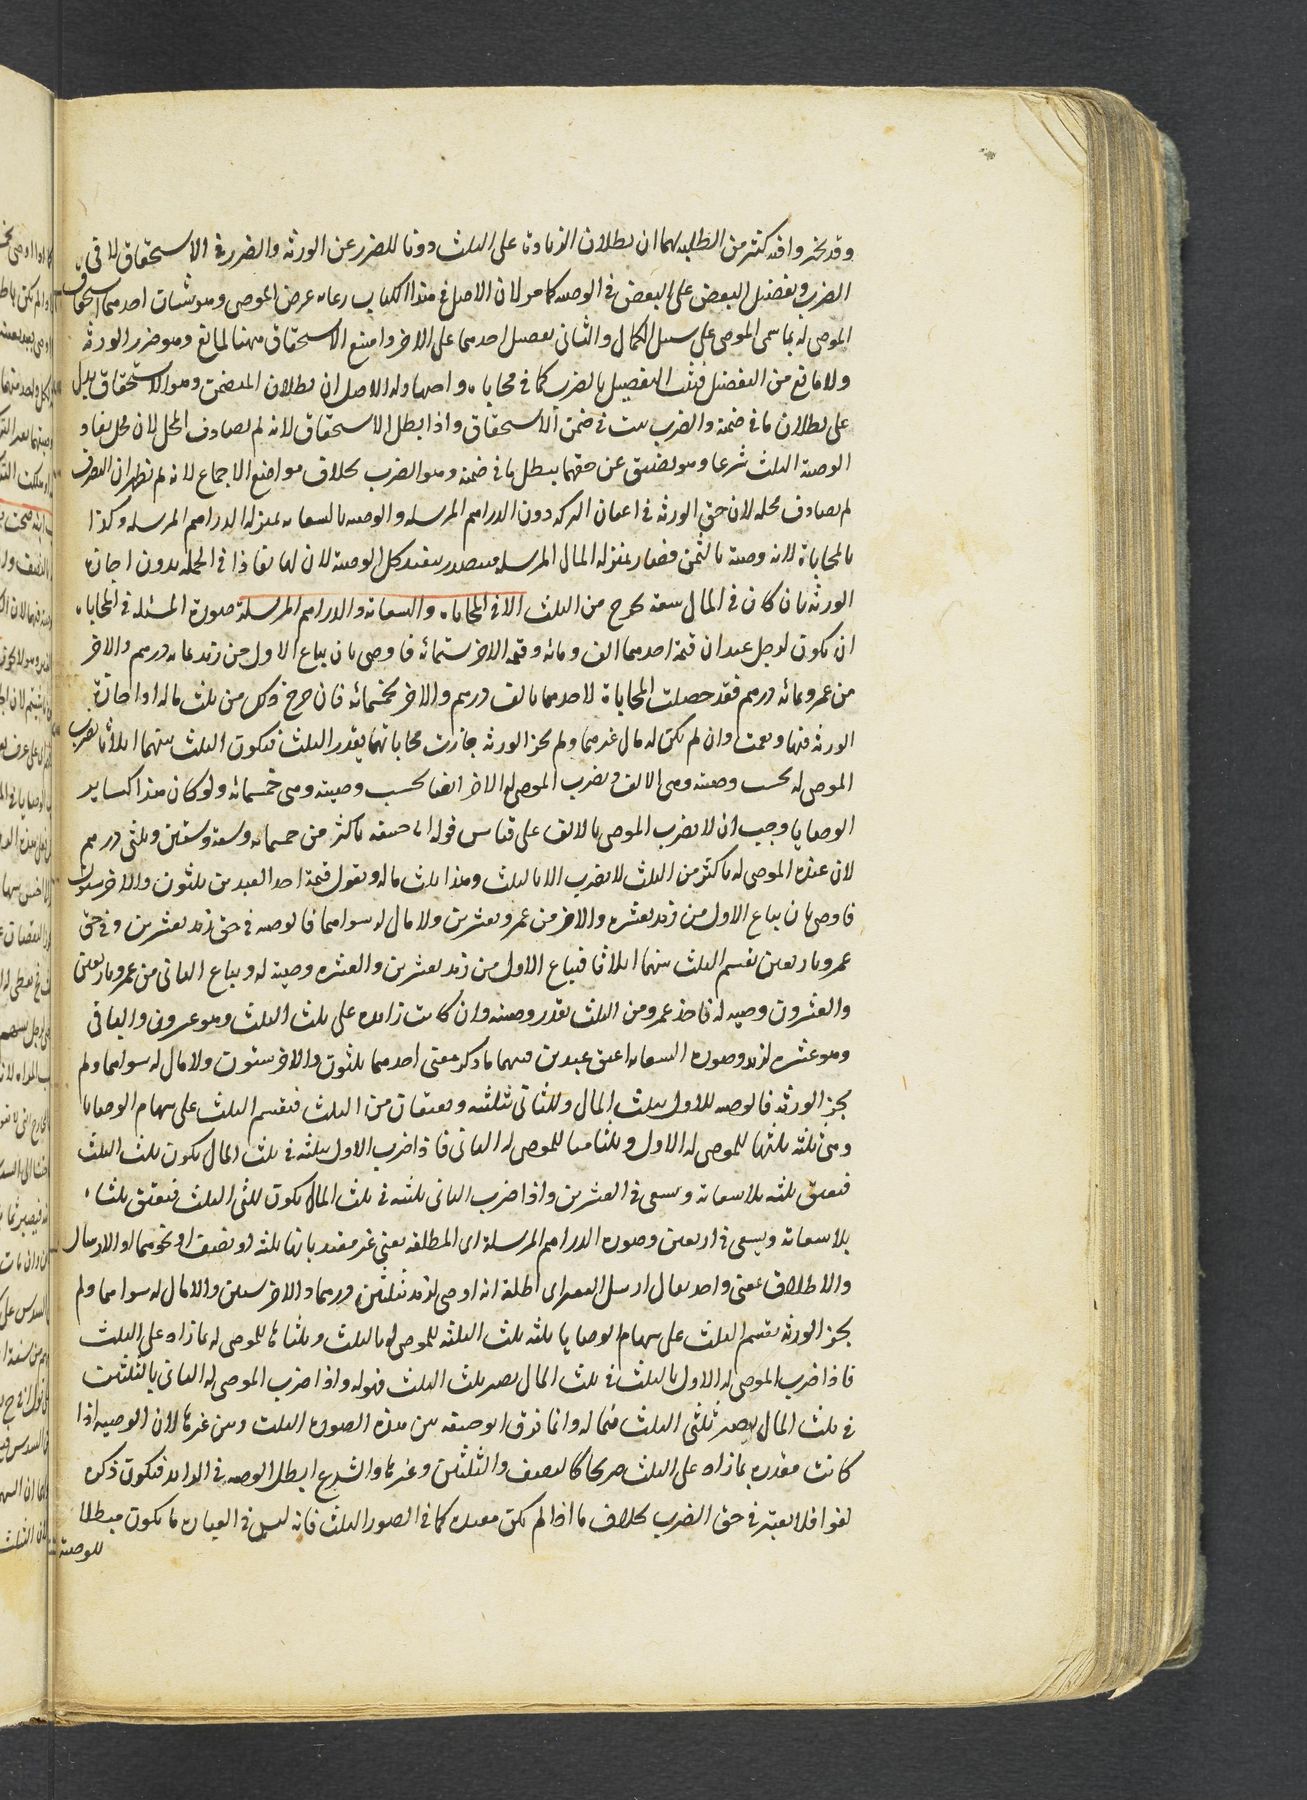 وقد تخير وافيه كثير من الطلبة لهما ان بطلان الزيادة على الثلث دفعا للضرر عن الورثة والضرر في الاستحقاق لا في
الضرب وتفضيل البعض على البعض في الوصية كما مر لان الاصل في هذا الباب رعاية غرض الموصي وهو شيئان احدهما استحقاق
الموصى له بما سمى الموصي على سبيل الكمال والثاني تفضيل احدهما على الاخر وامتنع الاستحقاق ههنا لمانع وهو ضرر الورثة
ولا مانع من التفضيل فيثبت التفضيل بالضرب كما في محاباة واختها وله الاصل ان بطلان المتضمن وهو الاستحقاق يدل
على بطلان ما في ضمنه والضرب يثبت في ضمن الاستحقاق واذا بطل الاستحقاق لانه لم يصادف المحل لان محل نفاد
الوصية الثلث شرعا وهو يضيق عن حقهما يبطل ما في ضمنه وهو الضرب بخلاف مواضع الاجماع لانه لم يظهر ان التصرف
لم يصادف محله لان حق الورثة في اعيان التركة دون الدراهم المرسلة والوصية بالسعاية بمنزلة الدراهم المرسلة وكذا
بالمحاباة لانه وصية بالثمن فصار بمنزلة المال المرسل فيتصور تنفيذ كل الوصية لان لها نفاذا في الجملة بدون اجازة
الورثة بان كان في المال سعة تخرج من الثلث الا في المحاباة والسعاية والدراهم المرسلة صورة المسئلة في المحاباة
ان يكون لرجل عبدان قيمة احدهما الف ومائة وقيمة الاخر ستمائة فاوصى بان يباع الاول من زيد بمائة درهم والاخر
من عمرو بمائة درهم فقد حصلت المحاباة لاحدهما بالف درهم والاخر بخمسمائة فان خرج ذلك من ثلث ماله او اجازة
الورثة فبها ونعمت وان لم يكن له مال غيرهما ولم يجز الورثة جازت محاباتهما بقدر الثلث فيكون الثلث بينهما اثلاثا يضرب
الموصى له بحسب وصيته وهي الالف ويضرب الموصى له الاخر ايضا بحسب وصيته وهي خمسمائة ولو كان هذا كساير
الوصايا وجب ان لا يضرب الموصى بالالف على قياس قول ابي حنيفة باكثر من خمسمائة وستة وستين وثلثي درهم
لان عنده الموصى له باكثر من الثلث لا يضرب الا بالثلث وهذا ثلث ماله ويقول قيمة احد العبدين ثلثون والاخر ستون
فاوصى بان يباع الاول من زيد بعشرة والاخر من عمرو بعشرين ولا مال له سواهما فالوصية في حق زيد بعشرين وفي حق
عمرو باربعين يقسم الثلث بينهما اثلاثا فيباع الاول من زيد بعشرين والعشرة وصية له ويباع الثاني من عمرو باربعين
والعشرون وصية له فاخذ عمرو من الثلث بقدر وصيته وان كانت زائدة على ثلث الثلث وهو عشرون والباقي
وهو عشرة لزيد وصورة السعاية اعتق عبدين قيمتهما ما ذكر معنى احدهما ثلثون والاخر ستون ولا مال له سواهما ولم
يجز الورثة فالوصية للاول بثلث المال وللثاني بثلثيه ويعتقان من الثلث فيقسم الثلث على سهام الوصايا
وهي ثلثة ثلثها للموصى له الاول وثلثاها للموصى له الثاني فاذا ضرب الاول بثلثه في ثلث المال يكون ثلث الثلث
فيعتق ثلثه بلا سعاية ويسعى في العشرين واذا ضرب الثاني بثلثيه في ثلث المال يكون ثلثي الثلث فيعتق ثلثاه
بلا سعاية ويسعى في اربعين وصورة الدراهم المرسلة اي المطلقة يعني غير مقيد بانها ثلثه او نصف او نحوهما او الارسال
والاطلاق بمعنى واحد يقال ارسل البعير اي اطلقه انه اوصى لزيد بثلثين درهما والاخر ستين والامال له سواهما ولم
يجز الورثة يقسم الثلث على سهام الوصايا ثلثة ثلث الثلثة للموصى له بالثلث وثلثاها للموصى له بما زاد على الثلث
فاذا ضرب الموصى له الاول بالثلث في ثلث المال يصير ثلث الثلث فهو له واذا ضرب الموصى له الثاني بالثلثين
في ثلث المال يصير ثلثي الثلث فهما له وانما فرق ابو حنيفة بين هذه الصورة الثلث وبين غيرها لان الوصية اذا
كانت مقدرة بما زاد على الثلث صريحا كالنصف والثلثين وغيرهما والشرع ابطل الوصية في الزايد فيكون ذكره
لغوا فلا يعتبر في حق الضرب بخلاف ما اذا لم يكن مقدرة كما في الصور الثلث فانه ليس في العبارة ما يكون مبطلا
للوصية